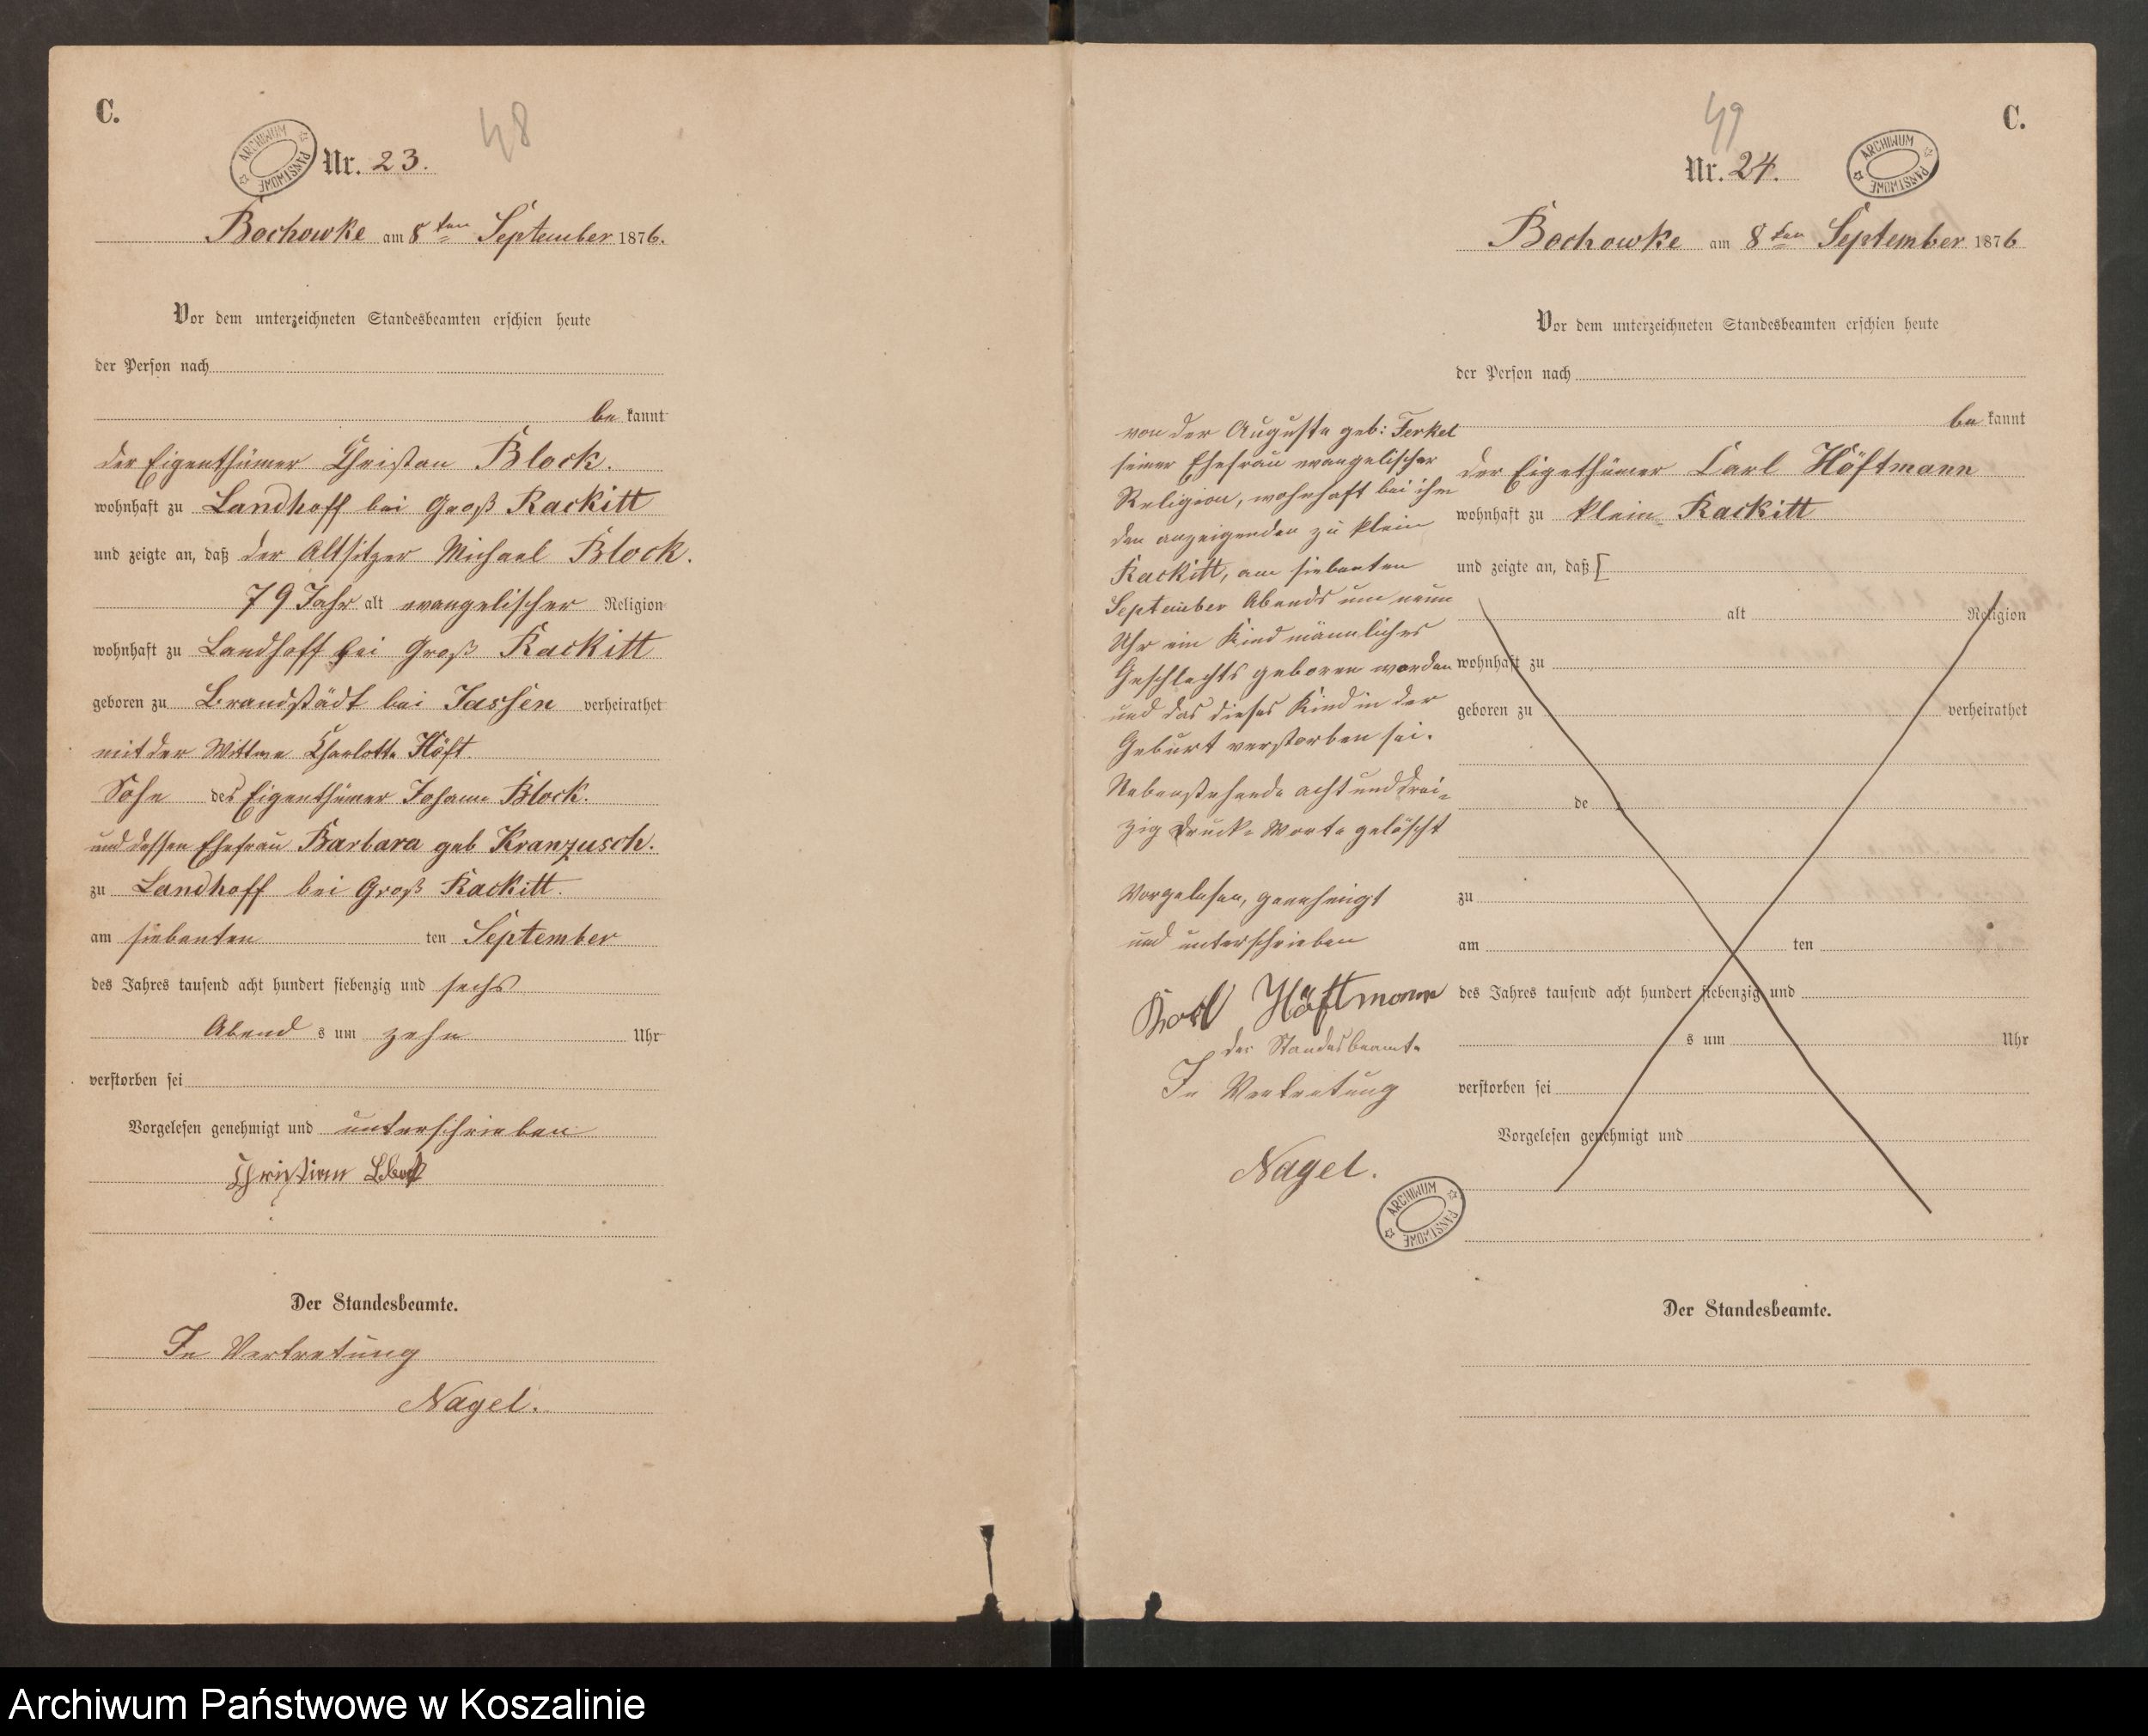 C.
48
ARCHIWUM PAŃSTWOWE
Nr. 23.
Bochowke am 8ten September 1876.
Vor dem unterzeichneten Standesbeamten erschien heute
der Person nach
be kannt
der Eigenthümer Christan Block.
wohnhaft zu Landhoff bei Groß Rackitt
und zeigte an, daß der Altsitzer Michael Block.
79 Jahr alt evangelischer Religion
wohnhaft zu Landhoff bei Groß Rackitt
geboren zu Brandstädt bei Jassen verheirathet
mit der Wittwe Charlotte Höft.
Sohn des Eigenthümer Johann Block.
und dessen Ehefrau Barbara geb Kranzusch.
zu Landhoff bei Groß Rackitt.
am siebenten ten September
des Jahres tausend acht hundert siebenzig und sechs
Abend s um zehn Uhr
verstorben sei
Vorgelesen genehmigt und unterschrieben
Christian Block
Der Standesbeamte.
In Vertretung
Nagel.
C.
49
Nr. 24.
ARCHIWUM PAŃSTWOWE
Bochowke am 8ten September 1876
Vor dem unterzeichneten Standesbeamten erschien heute
der Person nach
be kannt
der Eigethümer Carl Höftmann
wohnhaft zu klein Rackitt
und zeigte an, daß [
alt Religion
wohnhaft zu
geboren zu verheirathet
de
zu
am ten
des Jahres tausend acht hundert siebenzig und
s um Uhr
verstorben sei
Vorgelesen genehmigt und
Der Standesbeamte.
von der Auguste geb: Ferkel
seiner Ehefrau evangelischer
Religion, wohnhaft bei ihm
den anzeigenden zu klein
Rackitt, am siebenten
September Abends um neun
Uhr ein Kind männliches
Geschlechts geboren worden
und das dieses Kind in der
Geburt verstorben sei.
Nebenstehende acht und drei-
zig Druck-Worte gelöscht
Vorgelesen, genehmigt
und unterschrieben
Karl Höftmann
der Standesbeamte
In Vertretung
Nagel.
ARCHIWUM PAŃSTWOWE
Archiwum Państwowe w Koszalinie